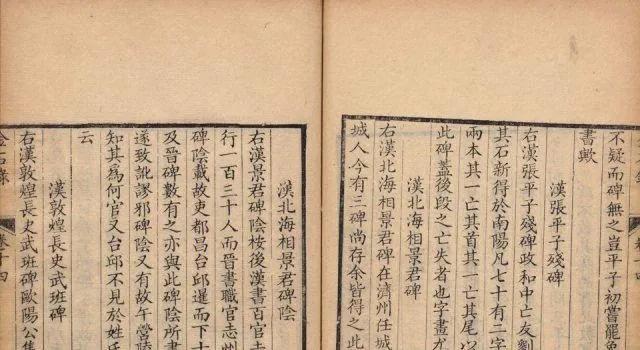 不疑而碑無之豈平子初嘗罷
書歟
漢張平子殘碑
右漢張平子殘碑政和中亡友劉
其石新得於南陽凡七十有二字
兩本其一亡其首其一亡其尾
此碑蓋後段之亡失者也字畫
漢北海相景君碑
右漢北海相景君碑在濟州任城
城人今有三碑尚存余皆得之此
漢北海相景君碑陰
右漢景君碑陰桉後漢書百官志
行一百三十人而晉書職官志州
碑陰載故吏都昌台邱暹而下十
及晉碑數有之亦與此碑陰所書
遂致訛謬邪碑陰又有故午營陵
知其為何官又台邱不見於姓
云
漢敦煌長史武班碑
右漢敦煌長史武班碑歐陽公集
金石錄 卷十四